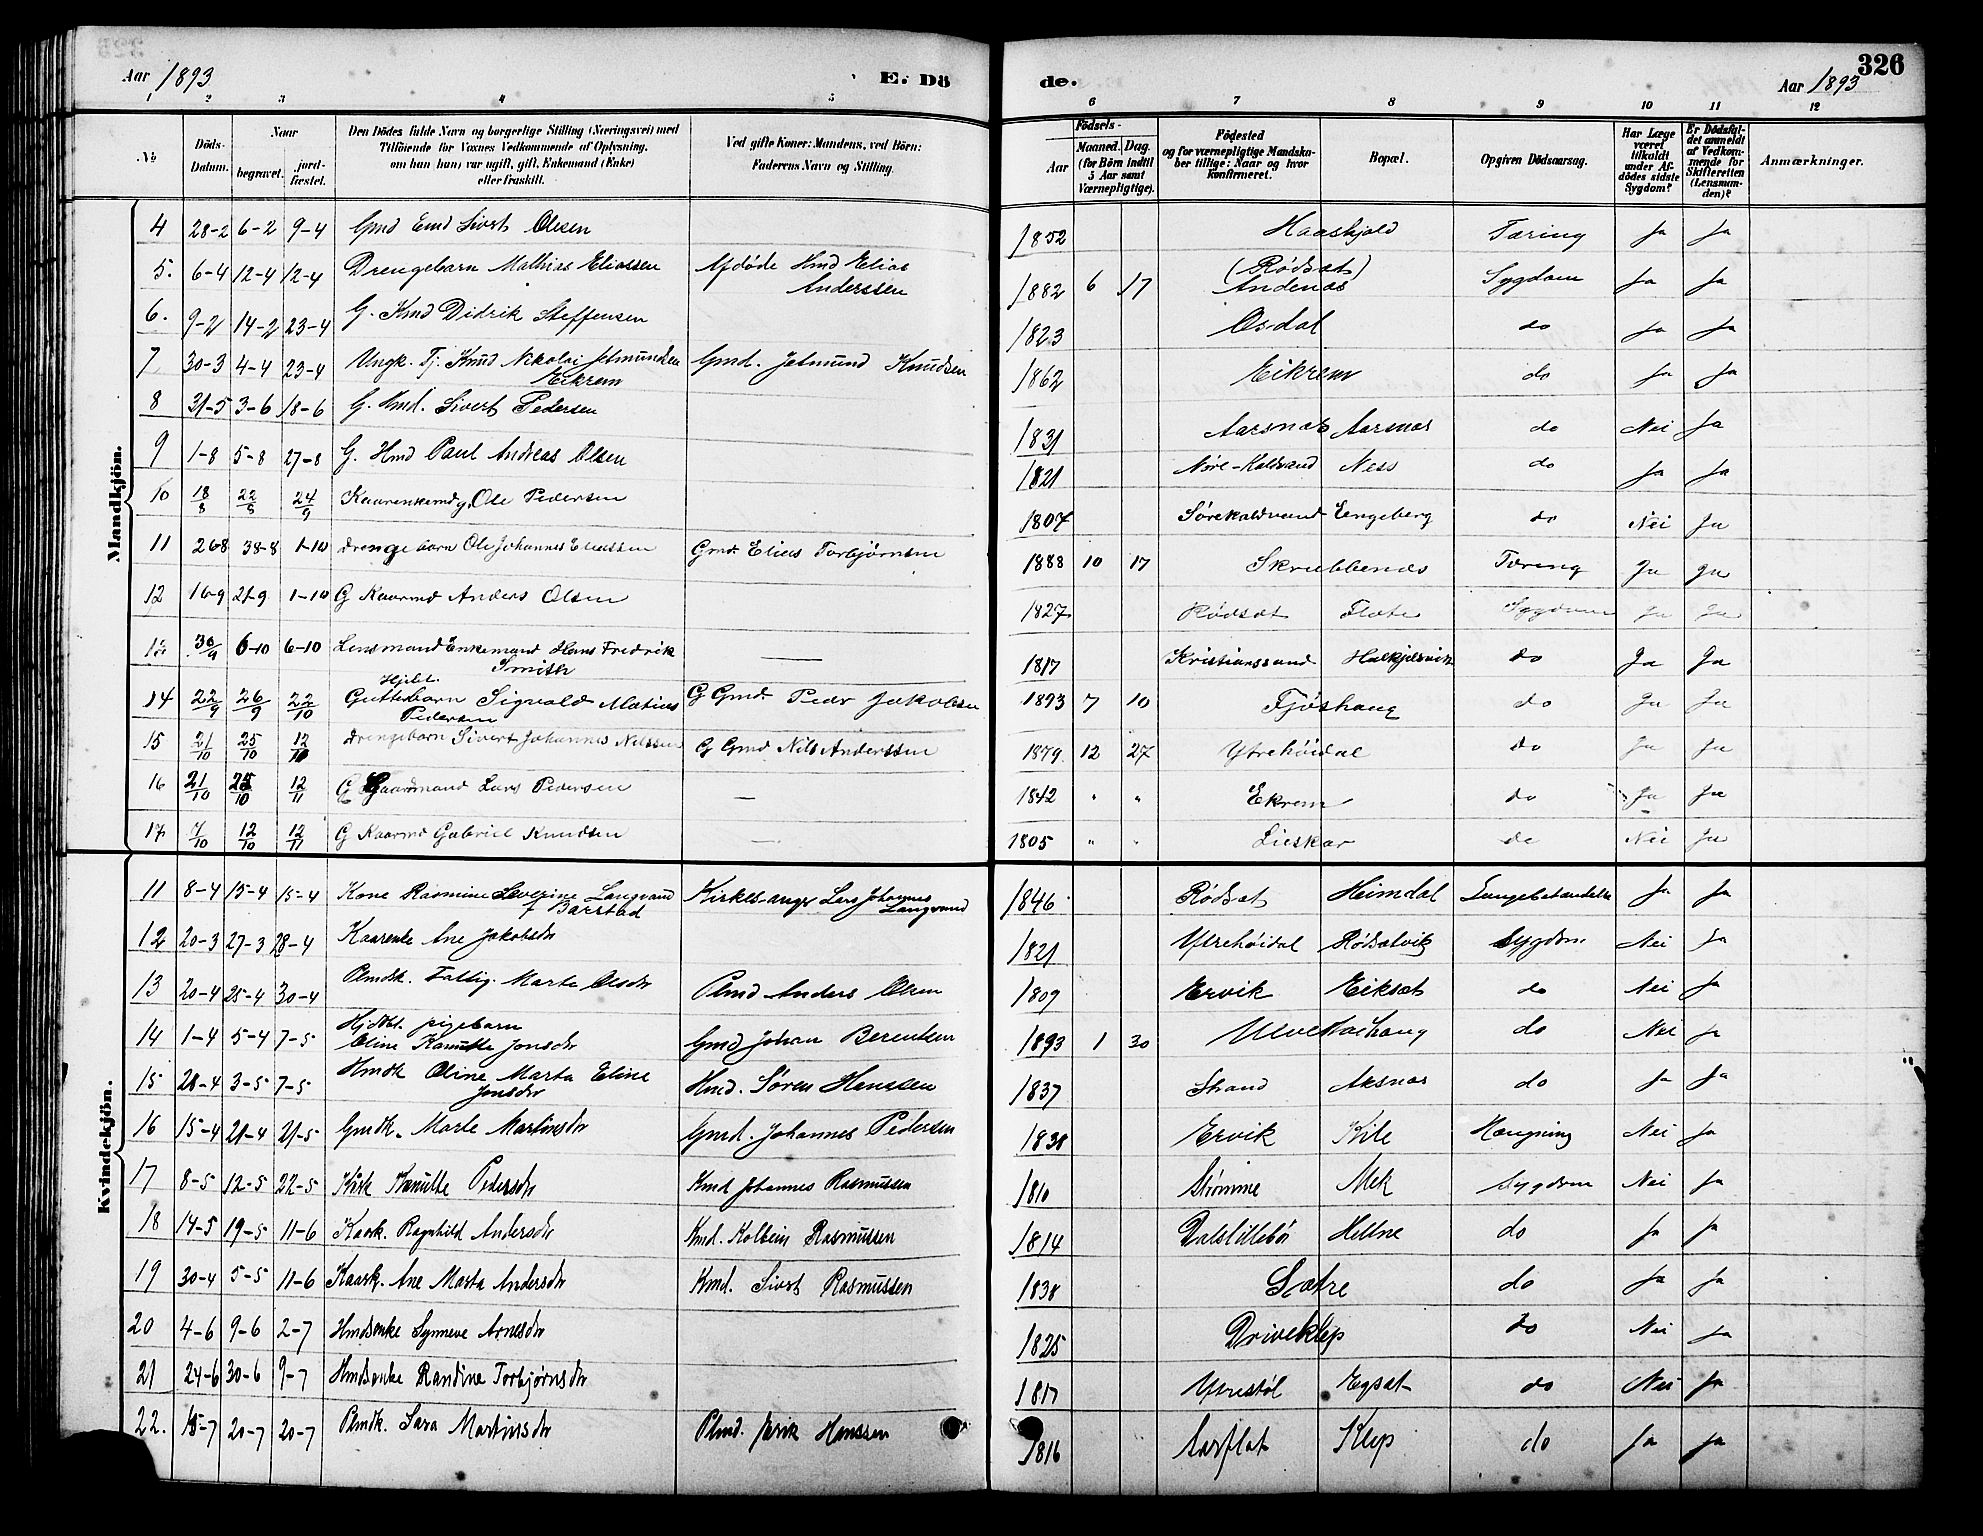 Aar 1893
E. Dö
de.
Aar 1893
326
1 2 3 4 5 6 7 8 9 10 11 12
No.
Döds-Datum.
Naar
begravet.
jord-fæstet.
Den Dödes fulde Navn og borgerlige Stilling (Næringsvei) med
Tilföiende for Voxnes Vedkommende af Oplysning,
om han (hun) var ugift, gift, Enkemand (Enke)
eller fraskilt.
Ved gifte Koner: Mandens, ved Börn:
Faderens Navn og Stilling.
Födsels-
Aar
Maaned. Dag.
(for Börn indtil
5 Aar samt
Værnepligtige).
Födested
og for værnepligtige Mandska-
ber tillige: Naar og hvor
Konfirmeret.
Bopæl.
Opgiven Dödsaarsag.
Har Læge
været
tilkaldt
under Af-
dödes sidste
Sygdom?
Er Dödsfal-
det anmeldt
af Vedkom-
mende for
Skifteretten
(Lensman-
den)?
Anmærkninger.
Mandkjön.
4 28-2 6-2 9-4 Gmd Emd Sivert Olsen 1852 Haaskjold Tæring Ja Ja
5. 6-4 12-4 12-4 Drengebarn Mathias Eliassen Afdöde Hmd Elias Anderssen 1882 6 17 (Rødsæt) Andenæs Sygdom Ja Ja
6. 9-2 14-2 23-4 G. Kmd Didrik Steffensen 1823 Osdal do Ja Ja
7 30-3 4-4 23-4 Ungk. Tj. Knud Nikolai Jetmundsen Eikrem Gmd. Jetmund Knudsen 1862 Eikrem do Ja Ja
8 31-5 3-6 18-6 G. Hmd. Sivert Pedersen 1831 Aarsnæs Aarsnæs do Nei Ja
9 1-8 5-8 27-8 G. Hmd Paul Andreas Olsen 1821 Nøre-Kaldvand Ness do Ja Ja
10 18/8 22/8 24/9 Kaarenkemdg. Ole Pedersen 1807 Sørekaldvand Engeberg do Nei Ja
11 26-8 38-8 1-10 Drengebarn Ole Johannes Eliassen Gmd. Elias Torbjørnsen 1888 10 17 Skrubbenæs Tæring Ja Ja
12 16-9 21-9 1-10 G Kaarmd Anders Olsen 1827 Rødsæt Flate Sygdom Ja Ja
13 30/9 6-10 6-10 Lensmand Enkemand Hans Fredrik Smith — 1817 Kristianssund Halkjelsvik do Ja Ja
14 22/9 26/9 22/10 Hjdbt. Guttebarn Sigvald Matius Pedersen G Gmd. Peder Jakobsen 1893 7 10 Fjøshaug do Ja Ja
15 21/10 25/10 12/11 Drengebarn Sivert Johannes Nilssen G Gmd Nils Anderssen 1879 12 27 Ytrehøidal do Ja Ja
16 21/10 25/10 12/11 G Gaardmand Lars Pedersen — 1842 " " Ekrem do Ja Ja
17 7/10 12/10 12/11 G Kaarmd Gabriel Knudsen — 1805 " " Lieskar do Nei Ja
Kvindekjön.
11 8-4 15-4 15-4 Kone Rasmine Severine Langvand f Barstad Kirkesanger Lars Johannes Langvand 1846 Rødsæt Heimdal Lungebetændelse Ja Ja
12 20-3 27-3 28-4 Kaarenke Ane Jakobsdr 1821 Ytrehøidal Rødsætvik Sygdom Nei Ja
13 20-4 25-4 30-4 Plmdk. Fattig. Marta Olsdr Plmd Anders Olsen 1809 Ervik Eiksæt do Nei Ja
14 1-4 5-4 7-5 Hjdbt. pigebarn Oline Kanutte Jonsdr Gmd Johan Berentsen 1893 1 30 do Nei Ja
15 28-4 3-5 7-5 Hmdk Oline Marta Eline Jonsdr Hmd. Søren Hanssen 1837 Strand Aksnæs do Ja Ja
16 15-4 21-4 21-5 Gmdk. Marte Martinsdr Gmd. Johannes Pedersen 1838 Ervik Kile Hængning Nei Ja
17 8-5 12-5 22-5 Kark Kanutte Pedersdr Kmd Johannes Rasmussen 1810 Strømme Mek Sygdom Nei Ja
18 14-5 19-5 11-6 Kaark. Ragnhild Andersdr Kmd. Kolbein Rasmussen 1814 Dalslillebø Hellne do Ja Ja
19 30-4 5-5 11-6 Kaark. Ane Marta Andersdr Kmd. Sivert Rasmussen 1838 Sætre do Ja Ja
20 4-6 9-6 2-7 Hmdsenke Synneve Arnesdr 1825 Driveklep do Nei Ja
21 24-6 30-6 9-7 Hmdsenke Randine Torbjørnsdr 1817 Ytrestøl Egsæt do Nei Ja
22. 15-7 20-7 20-7 Plmdk. Sara Martinsdr Plmd. Jerik Hanssen 1816 Aarflot Klep do Ja Ja